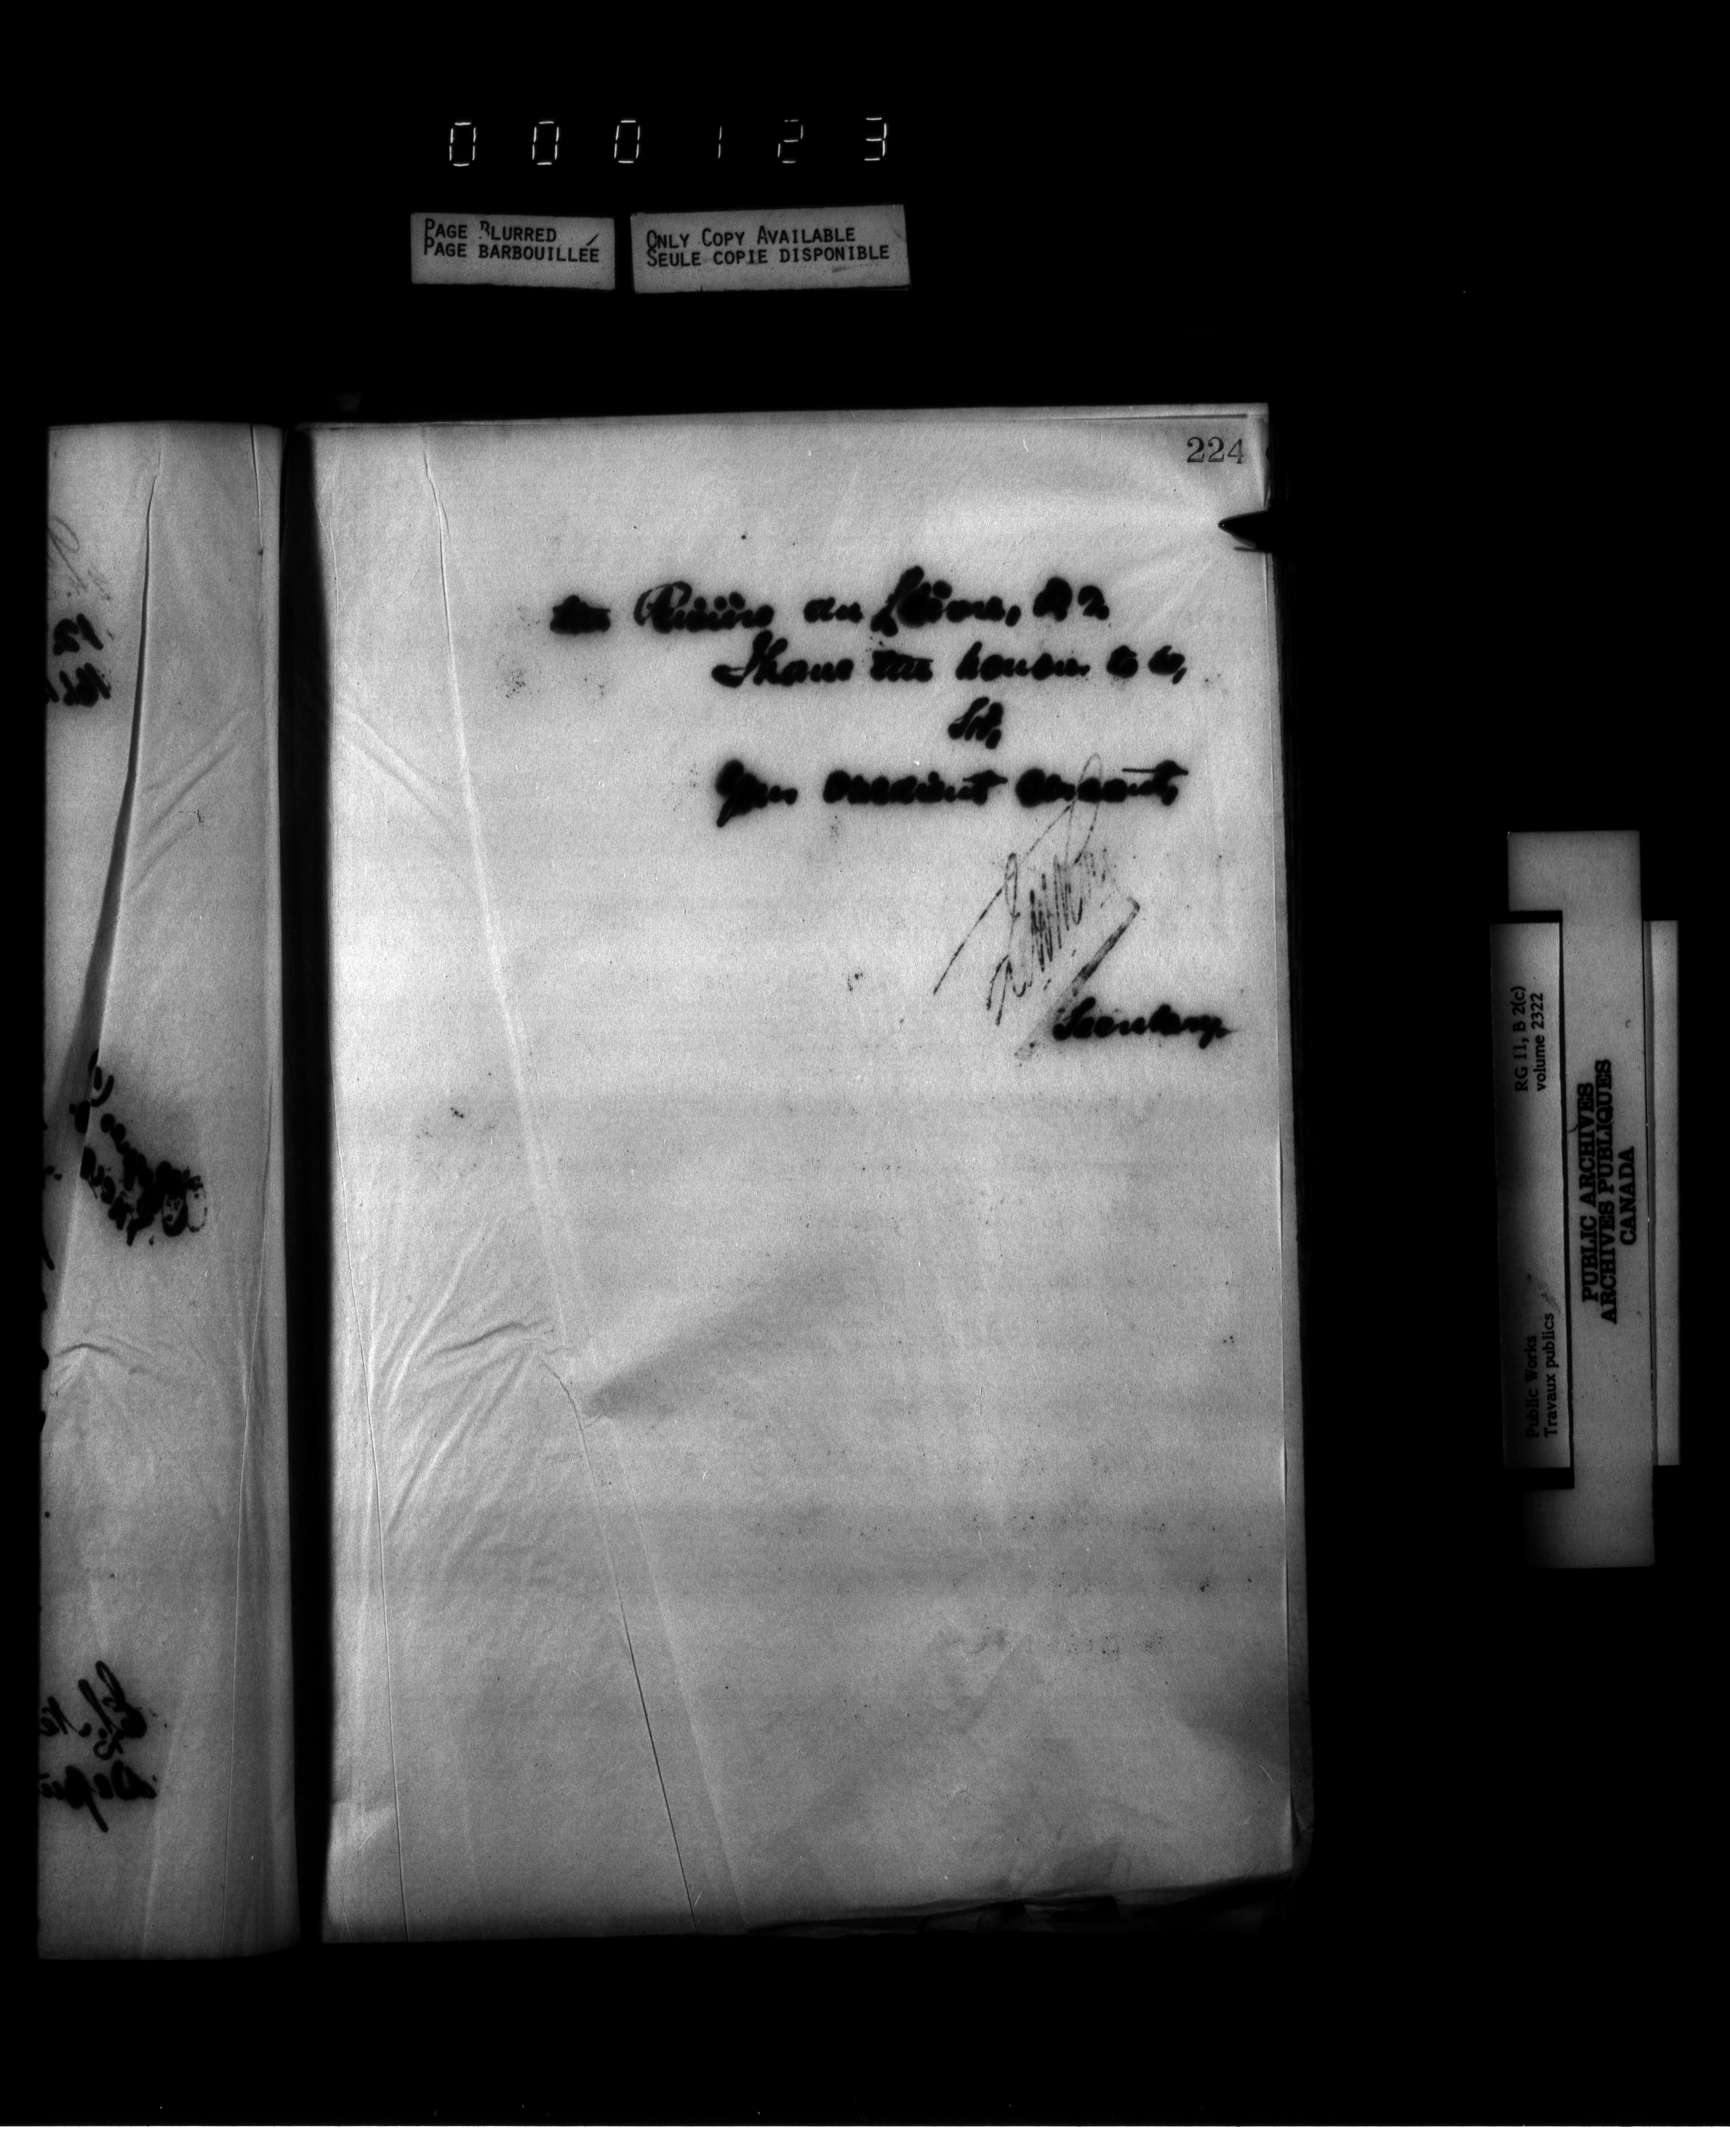 000123
PAGE BLURRED
PAGE BARBOUILLÉE
ONLY COPY AVAILABLE
SEULE COPIE DISPONIBLE
224
the Rivière du Lièvre, P Q.
I have the honour to be,
Sir,
Your obedient servant,
Secretary
RG 11, B 2(c)
volume 2322
Public Works
Travaux publics
PUBLIC ARCHIVES
ARCHIVES PUBLIQUES
CANADA